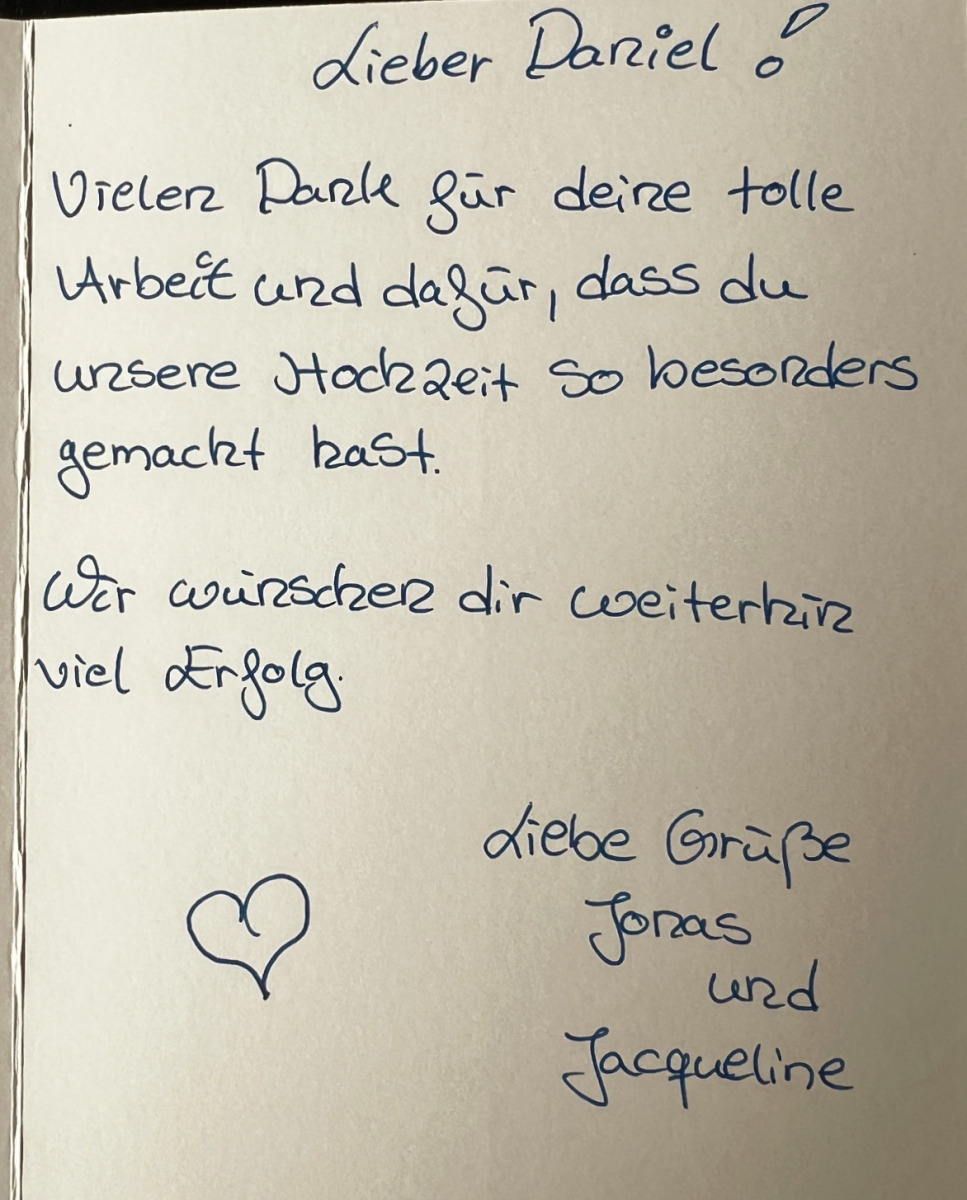 Lieber Daniel!
Vielen Dank für deine tolle
Arbeit und dafür, dass du
unsere Hochzeit so besonders
gemacht hast.
Wir wünschen dir weiterhin
viel Erfolg.
Liebe Grüße
Jonas
und
Jacqueline